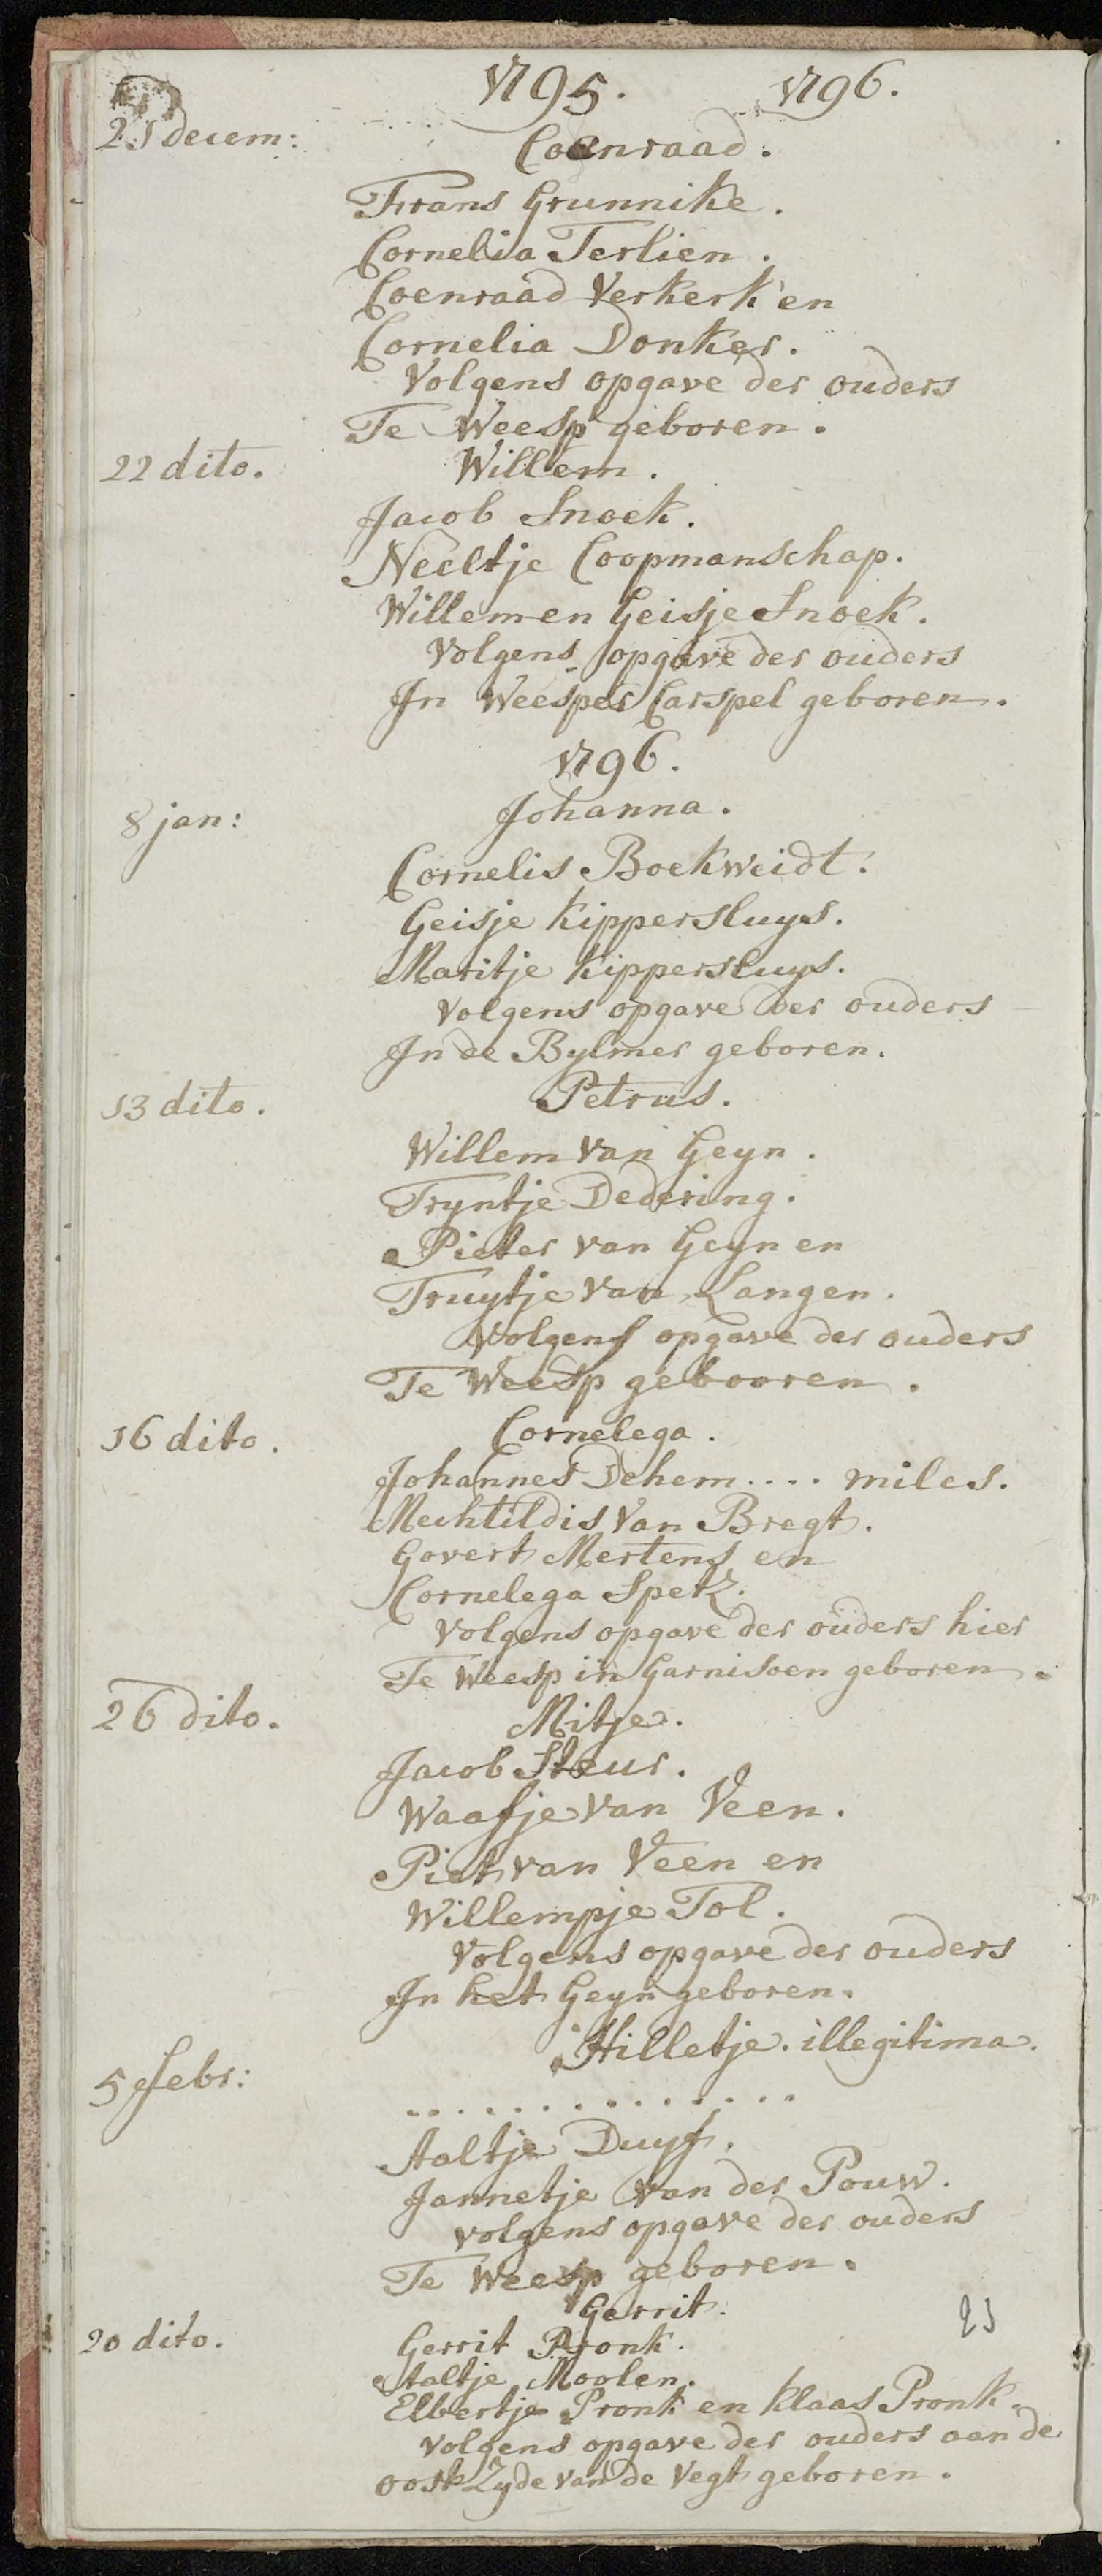 1795. 1796.
21 decem: Coenraad.
Frans Grunnike.
Cornelia Terlien.
Coenraad Verkerk en
Cornelia Donker.
Volgens opgave der ouders
Te Weesp geboren.
22 dito. Willem.
Jacob Snoek.
Neeltje Coopmanschap.
Willem en Geisje Snoek.
Volgens opgave der ouders
In Weesper Carspel geboren.
1796.
8 jan: Johanna.
Cornelis Boekweidt.
Geisje Kippersluys.
Maritje Kippersluys.
Volgens opgave der ouders
In de Bylmer geboren.
13 dito. Petrus.
Willem van Geyn.
Tryntje Dedering.
Pieter van Geyn en
Truytje van Langen.
Volgens opgave der ouders
Te Weesp gebooren.
16 dito. Cornelega.
Johannes Dehem .... miles.
Mechtildis van Bregt.
Govert Mertens en
Cornelega Spek.
Volgens opgave der ouders hier
Te Weesp in Garnisoen geboren.
26 dito. Mitje.
Jacob Steur.
Waafje van Veen.
Piet van Veen en
Willempje Tol.
Volgens opgave der ouders
In het Geyn geboren.
5 febr: Hilletje. illegitima.
...............
Aaltje Duyf.
Jannetje van der Pouw.
volgens opgave der ouders
Te Weesp geboren.
Gerrit. 21
20 dito. Gerrit Pronk.
Aaltje Moolen.
Elbertje Pronk en Klaas Pronk.
volgens opgave der ouders aan de
oost Zyde van de Vegt geboren.